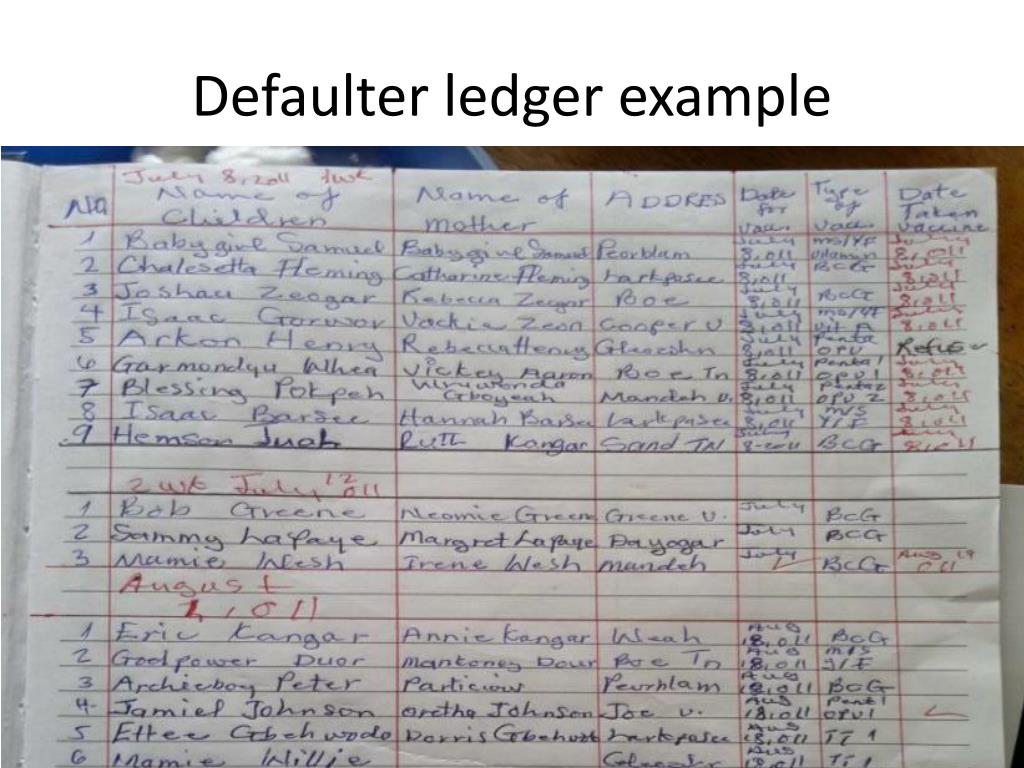 Defaulter ledger example
July 8, 2011 1wk
No Name of Children Name of mother ADDRES Date for vacc. Type of vacc Date Taken vaccine
1 Baby girl Samuel Baby girl Samuel Peorblam July 8, 011 ms/YF vitamin July 8, 011
2 Chalesetta Fleming Catharine Fleming Larkpasee July 8, 011 BCG July 8, 011
3 Joshau Zeogar Rebecca Zeogar Boe July 8, 011 BCG July 8, 011
4 Isaac Gorwor Vackie Zeon Cooper v July 8, 011 ms/YF vit A July 8, 011
5 Arkon Henry Rebecca Henry July 8, 011 Penta OPV Refuse
6 Garmondyu Whea Vickey Aaron Boe Tn July 8, 011 Penta 1 OPV 1 July 8, 011
7 Blessing Pokpah Gboyeah Mandeh v. July 8, 011 Penta 2 OPV 2 July 8, 011
8 Isaac Barsee Hannah Barse Larkpasee July 8, 011 m/s Y/F July 8, 011
9 Hemson Juah Ruth Kangar Sand TN July 8-2011 BCG July 8, 011
2 wk July 12 011
1 Bob Greene Neomie Greene Greene v. July BCG
2 Sammy Lafaye Margret Lafaye Dayogar July BCG
3 Mamie Wesh Irene Wesh mandeh July BCG Aug 19 011
August
1, 011
1 Eric Kangar Annie Kangar Weah Aug 18, 011 BCG
2 Godpower Duor Mankoney Dour Boe Tn Aug 18, 011 m/s Y/F
3 Archieboy Peter Particious Peurblam Aug 18, 011 BCG
4. Jamiel Johnson Oretha Johnson Joe v. Aug 18, 011 Penta 1 OPV 1
5 Effee Gbehwodo Dorris Larkpasee Aug 18, 011 TT 1
6 Mamie Willie Aug 18, 011 TT 1